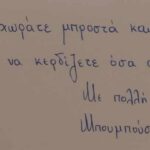 χωράτε μπροστά και
να κερδίζετε όσα
Με πολλή
Μπουμπού